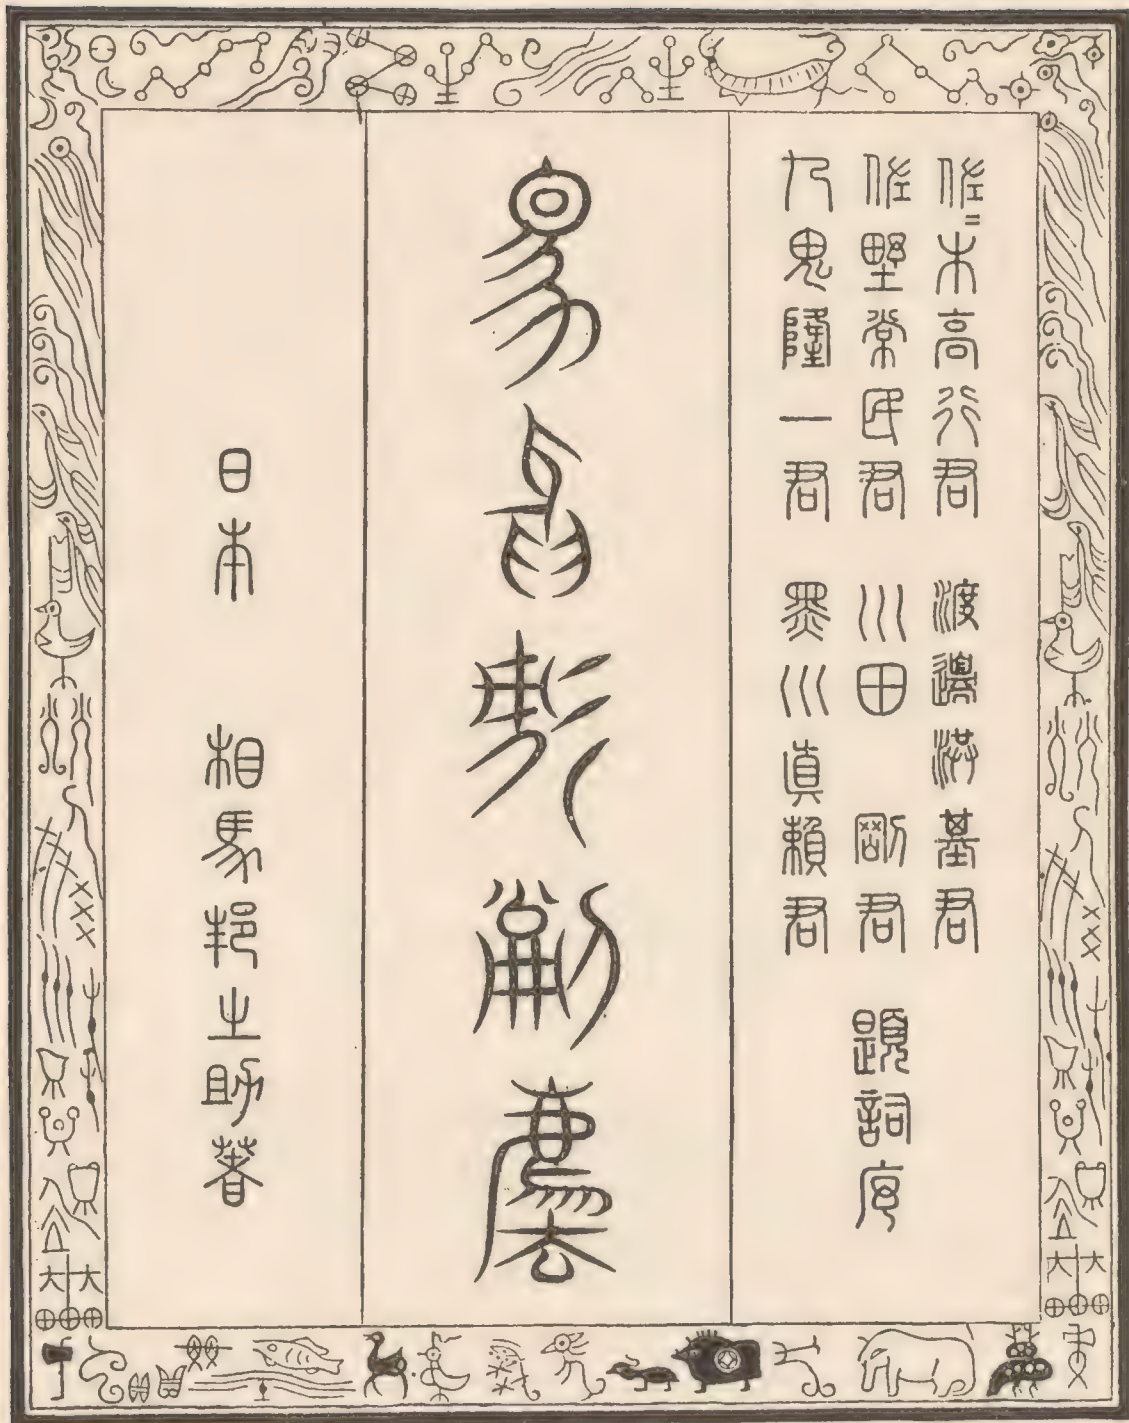 佐〻木高行君 渡邊洪基君
佐野常民君 川田剛君 題詞序
九鬼隆一君 黑川眞賴君
易灋
日本 相馬邦之助著